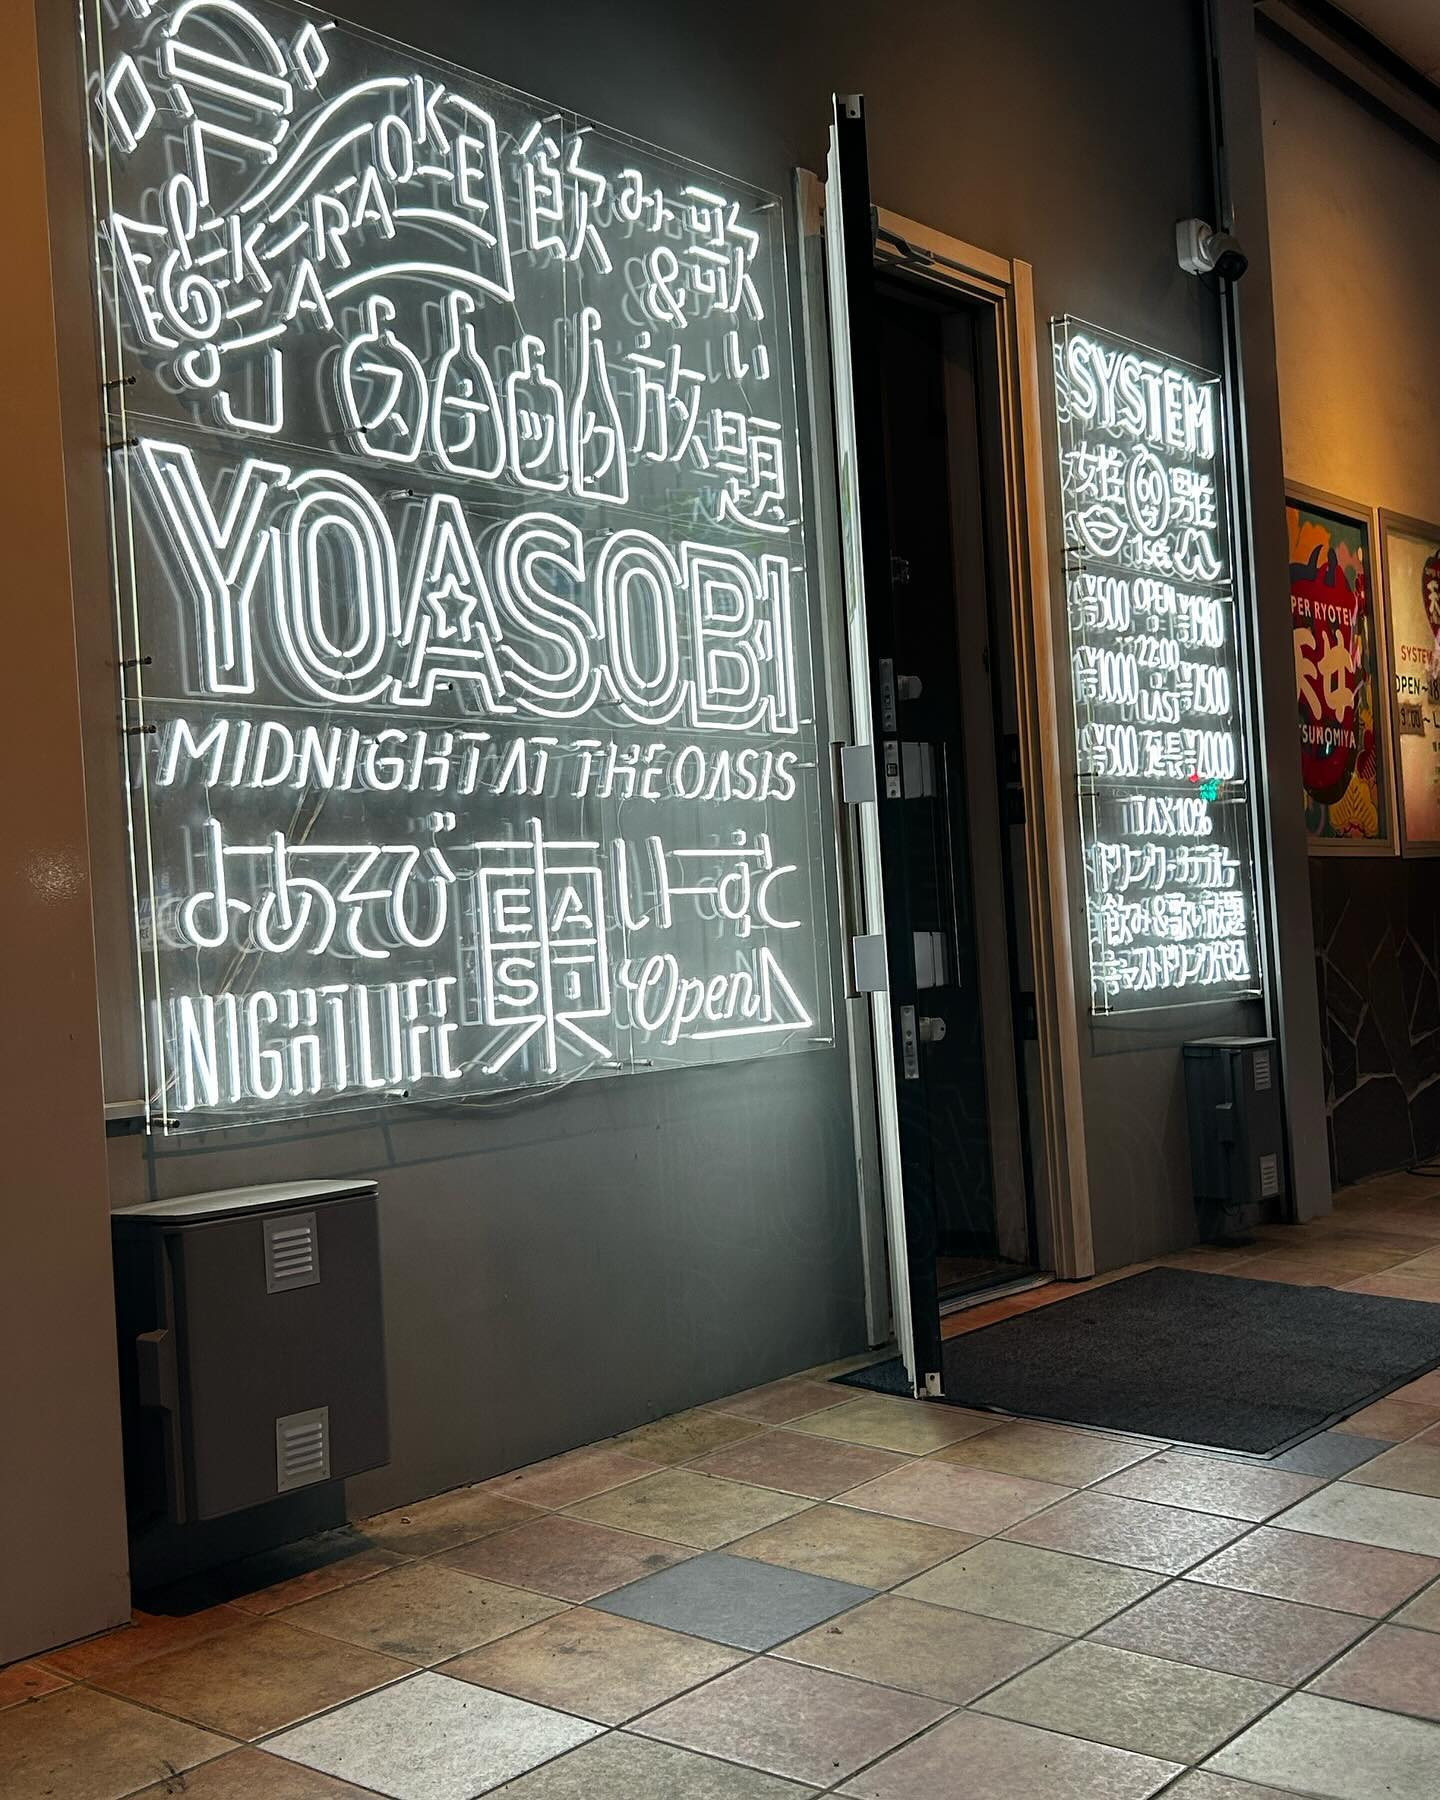 KARAOKE
飲み
&歌
い
放
題
スナック
YOASOBI
MIDNIGHT AT THE OASIS
よあそび
東
EAST
いーすと
NIGHTLIFE
Open
SYSTEM
女性
60分
男性
1set
¥500
OPEN
¥1980
22:00
¥1000
¥2500
LAST
¥500
延長
¥2000
TAX10%
ドリンク
飲み&歌い放題
キャストドリンク代込
SYSTEM
OPEN~